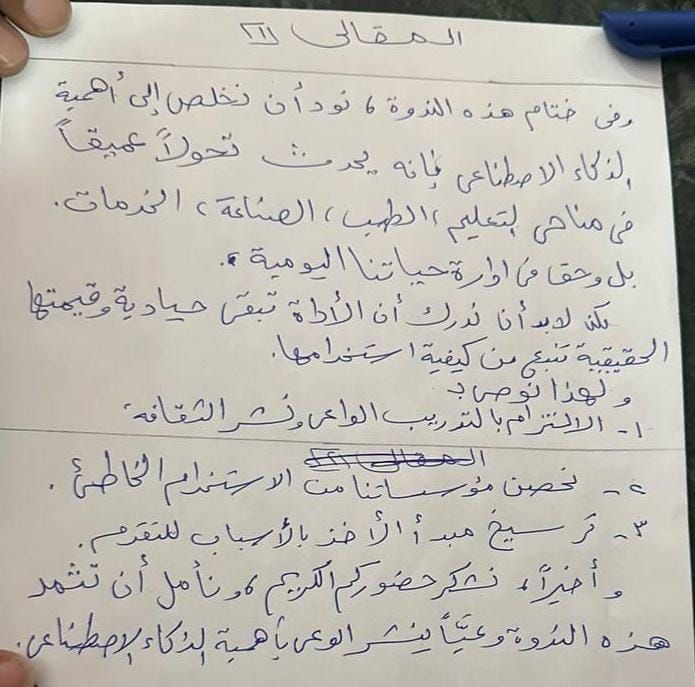 المقالى
وفى ختام هذه الندوة، نود أن نخلص إلى أهمية
الذكاء الاصطناعى فإنه يحدث تحولاً عميقاً
فى مناحى التعليم، الطب، الصناعة، الخدمات.
بل وحتى فى ادارة حياتنا اليومية.
لكن لابد أن ندرك أن الأداة تبقى حيادية وقيمتها
الحقيقية تنبع من كيفية استخدامها.
ولهذا نوصى بـ
١- الالتزام بالتدريب الواعى ونشر الثقافة.
المقالى
٢- نحصن مؤسساتنا من الاستخدام الخاطئ.
٣- ترسيخ مبدأ الأخذ بالأسباب للتقدم.
وأخيراً، نشكر حضوركم الكريم، ونأمل أن تثمر
هذه الندوة وعيًّا ينشر الوعى بأهمية الذكاء الاصطناعى.